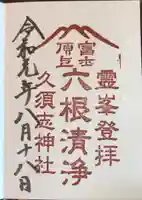 霊峯登拝
富士
頂上
六根清浄
久須志神社
令和元年八月十八日